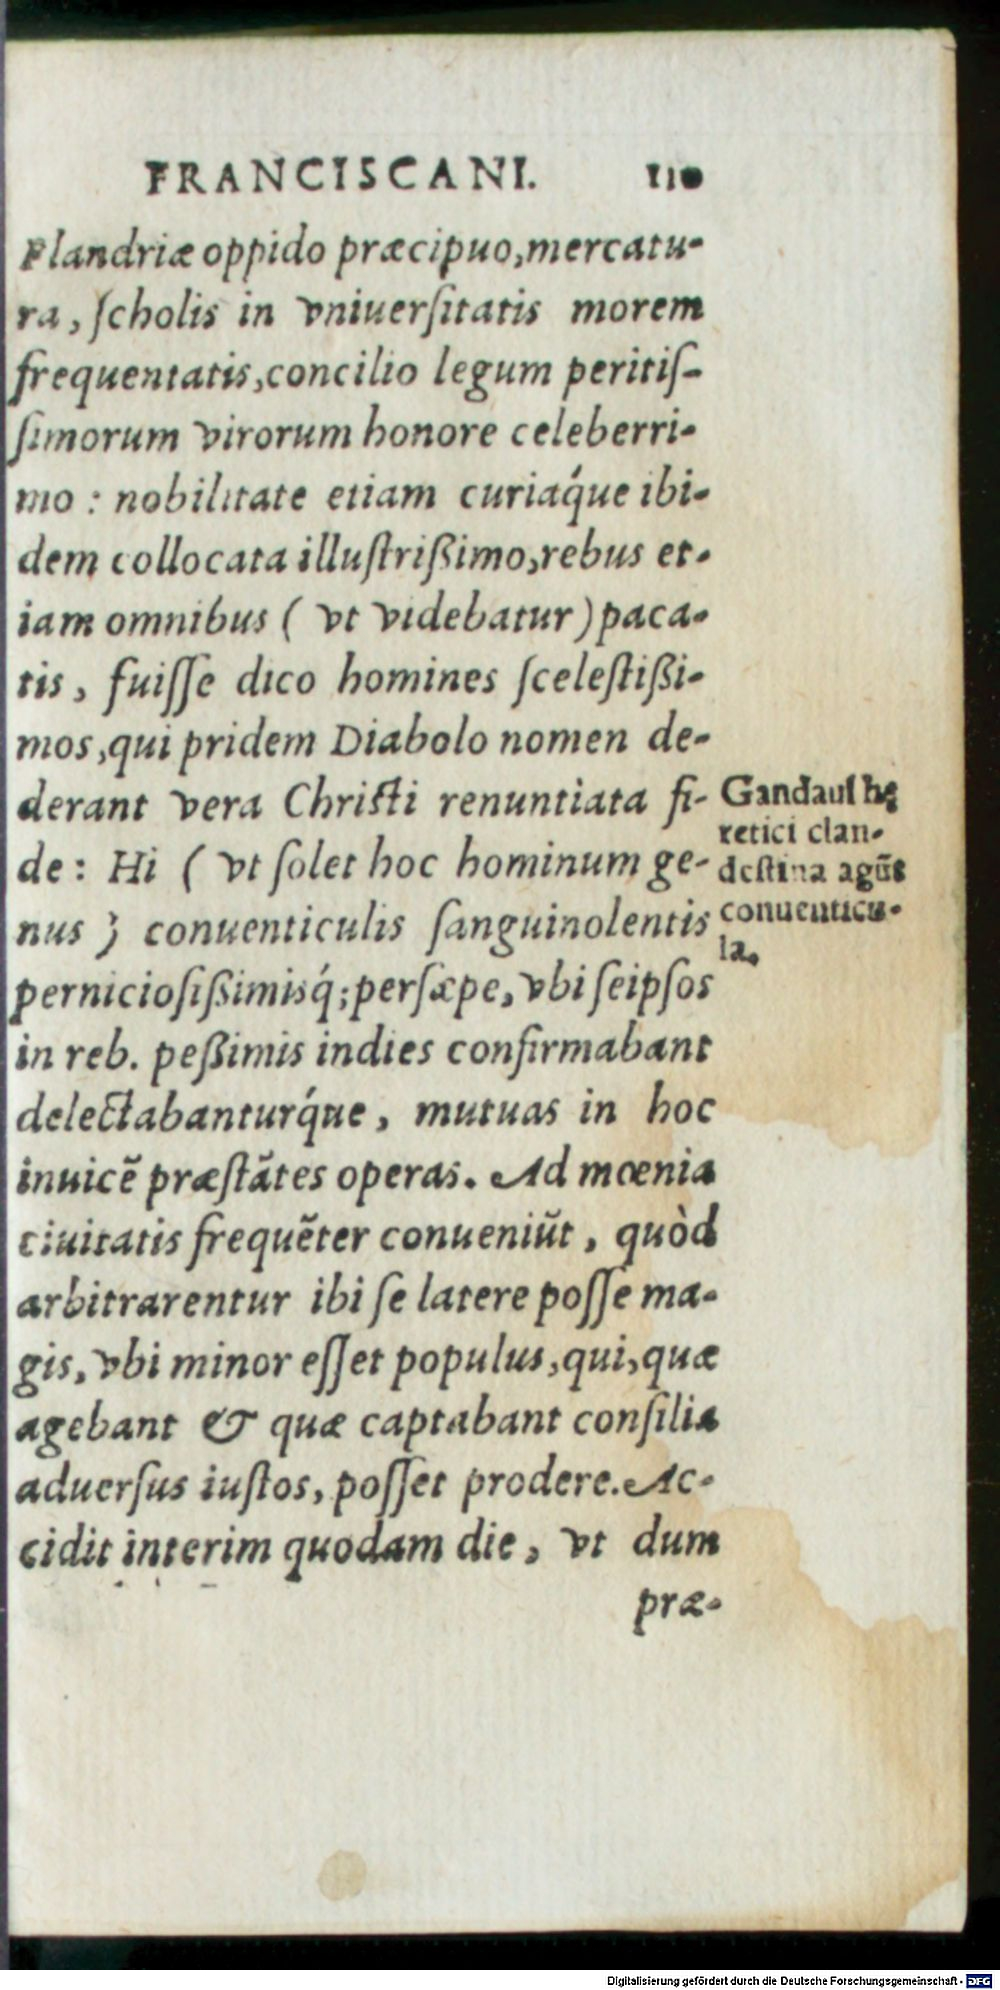 FRANCISCANI. 110
Flandriæ oppido præcipuo, mercatu-
ra, ſcholis in vniuerſitatis morem
frequentatis, concilio legum peritiſ-
ſimorum virorum honore celeberri-
mo : nobilitate etiam curiaq́ue ibi-
dem collocata illuſtrißimo, rebus et-
iam omnibus ( vt videbatur ) paca-
tis, fuiſſe dico homines ſceleſtißi-
mos, qui pridem Diabolo nomen de-
derant vera Chriſti renuntiata fi-
de : Hi ( vt ſolet hoc hominum ge-
nus ) conuenticulis ſanguinolentis
pernicioſißimisq́; perſæpe, vbi ſeipſos
in reb. peßimis indies confirmabant
delectabanturq́ue, mutuas in hoc
inuicẽ præſtãtes operas. Ad mœnia
ciuitatis frequẽter conueniũt, quòd
arbitrarentur ibi ſe latere poſſe ma-
gis, vbi minor eſſet populus, qui, quæ
agebant & quæ captabant conſilia
aduerſus iuſtos, poſſet prodere. Ac-
cidit interim quodam die, vt dum
præ-
Gandauſ hę
retici clan-
deſtina agũt
conuenticu-
la.
Digitalisierung gefördert durch die Deutsche Forschungsgemeinschaft - DFG